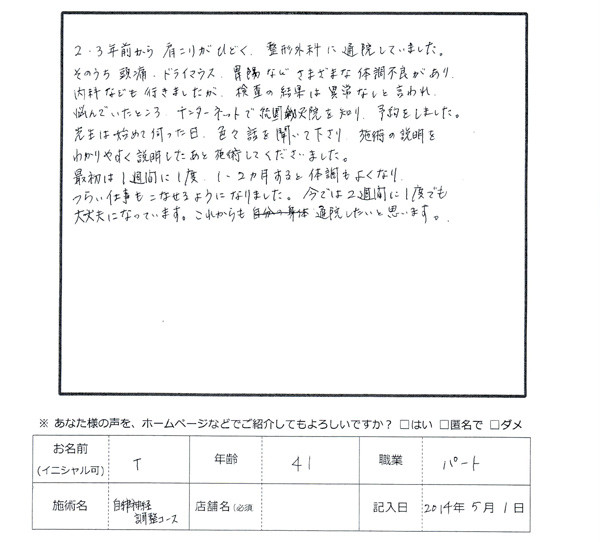 2・3年前から 肩こりがひどく、整形外科に通院していました。
そのうち 頭痛・ドライマウス・胃腸など さまざまな体調不良があり、
内科なども 行きましたが、検査の結果は異常なしと言われ、
悩んでいたところ インターネットで 院を知り、予約をしました。
先生は始めて伺った日、色々話を聞いて下さり、施術の説明を
わかりやすく説明したあと施術してくださいました。
最初は1週間に1度、1~2カ月すると体調もよくなり、
つらい仕事もこなせるようになりました。今では2週間に1度でも
大丈夫になっています。これからも 自分の身体 通院したいと思います。
※ あなた様の声を、ホームページなどでご紹介してもよろしいですか? □はい □匿名で □ダメ
お名前 (イニシャル可) T 年齢 41 職業 パート
施術名 自律神経調整コース 店舗名(必須 記入日 2014年 5月 1日